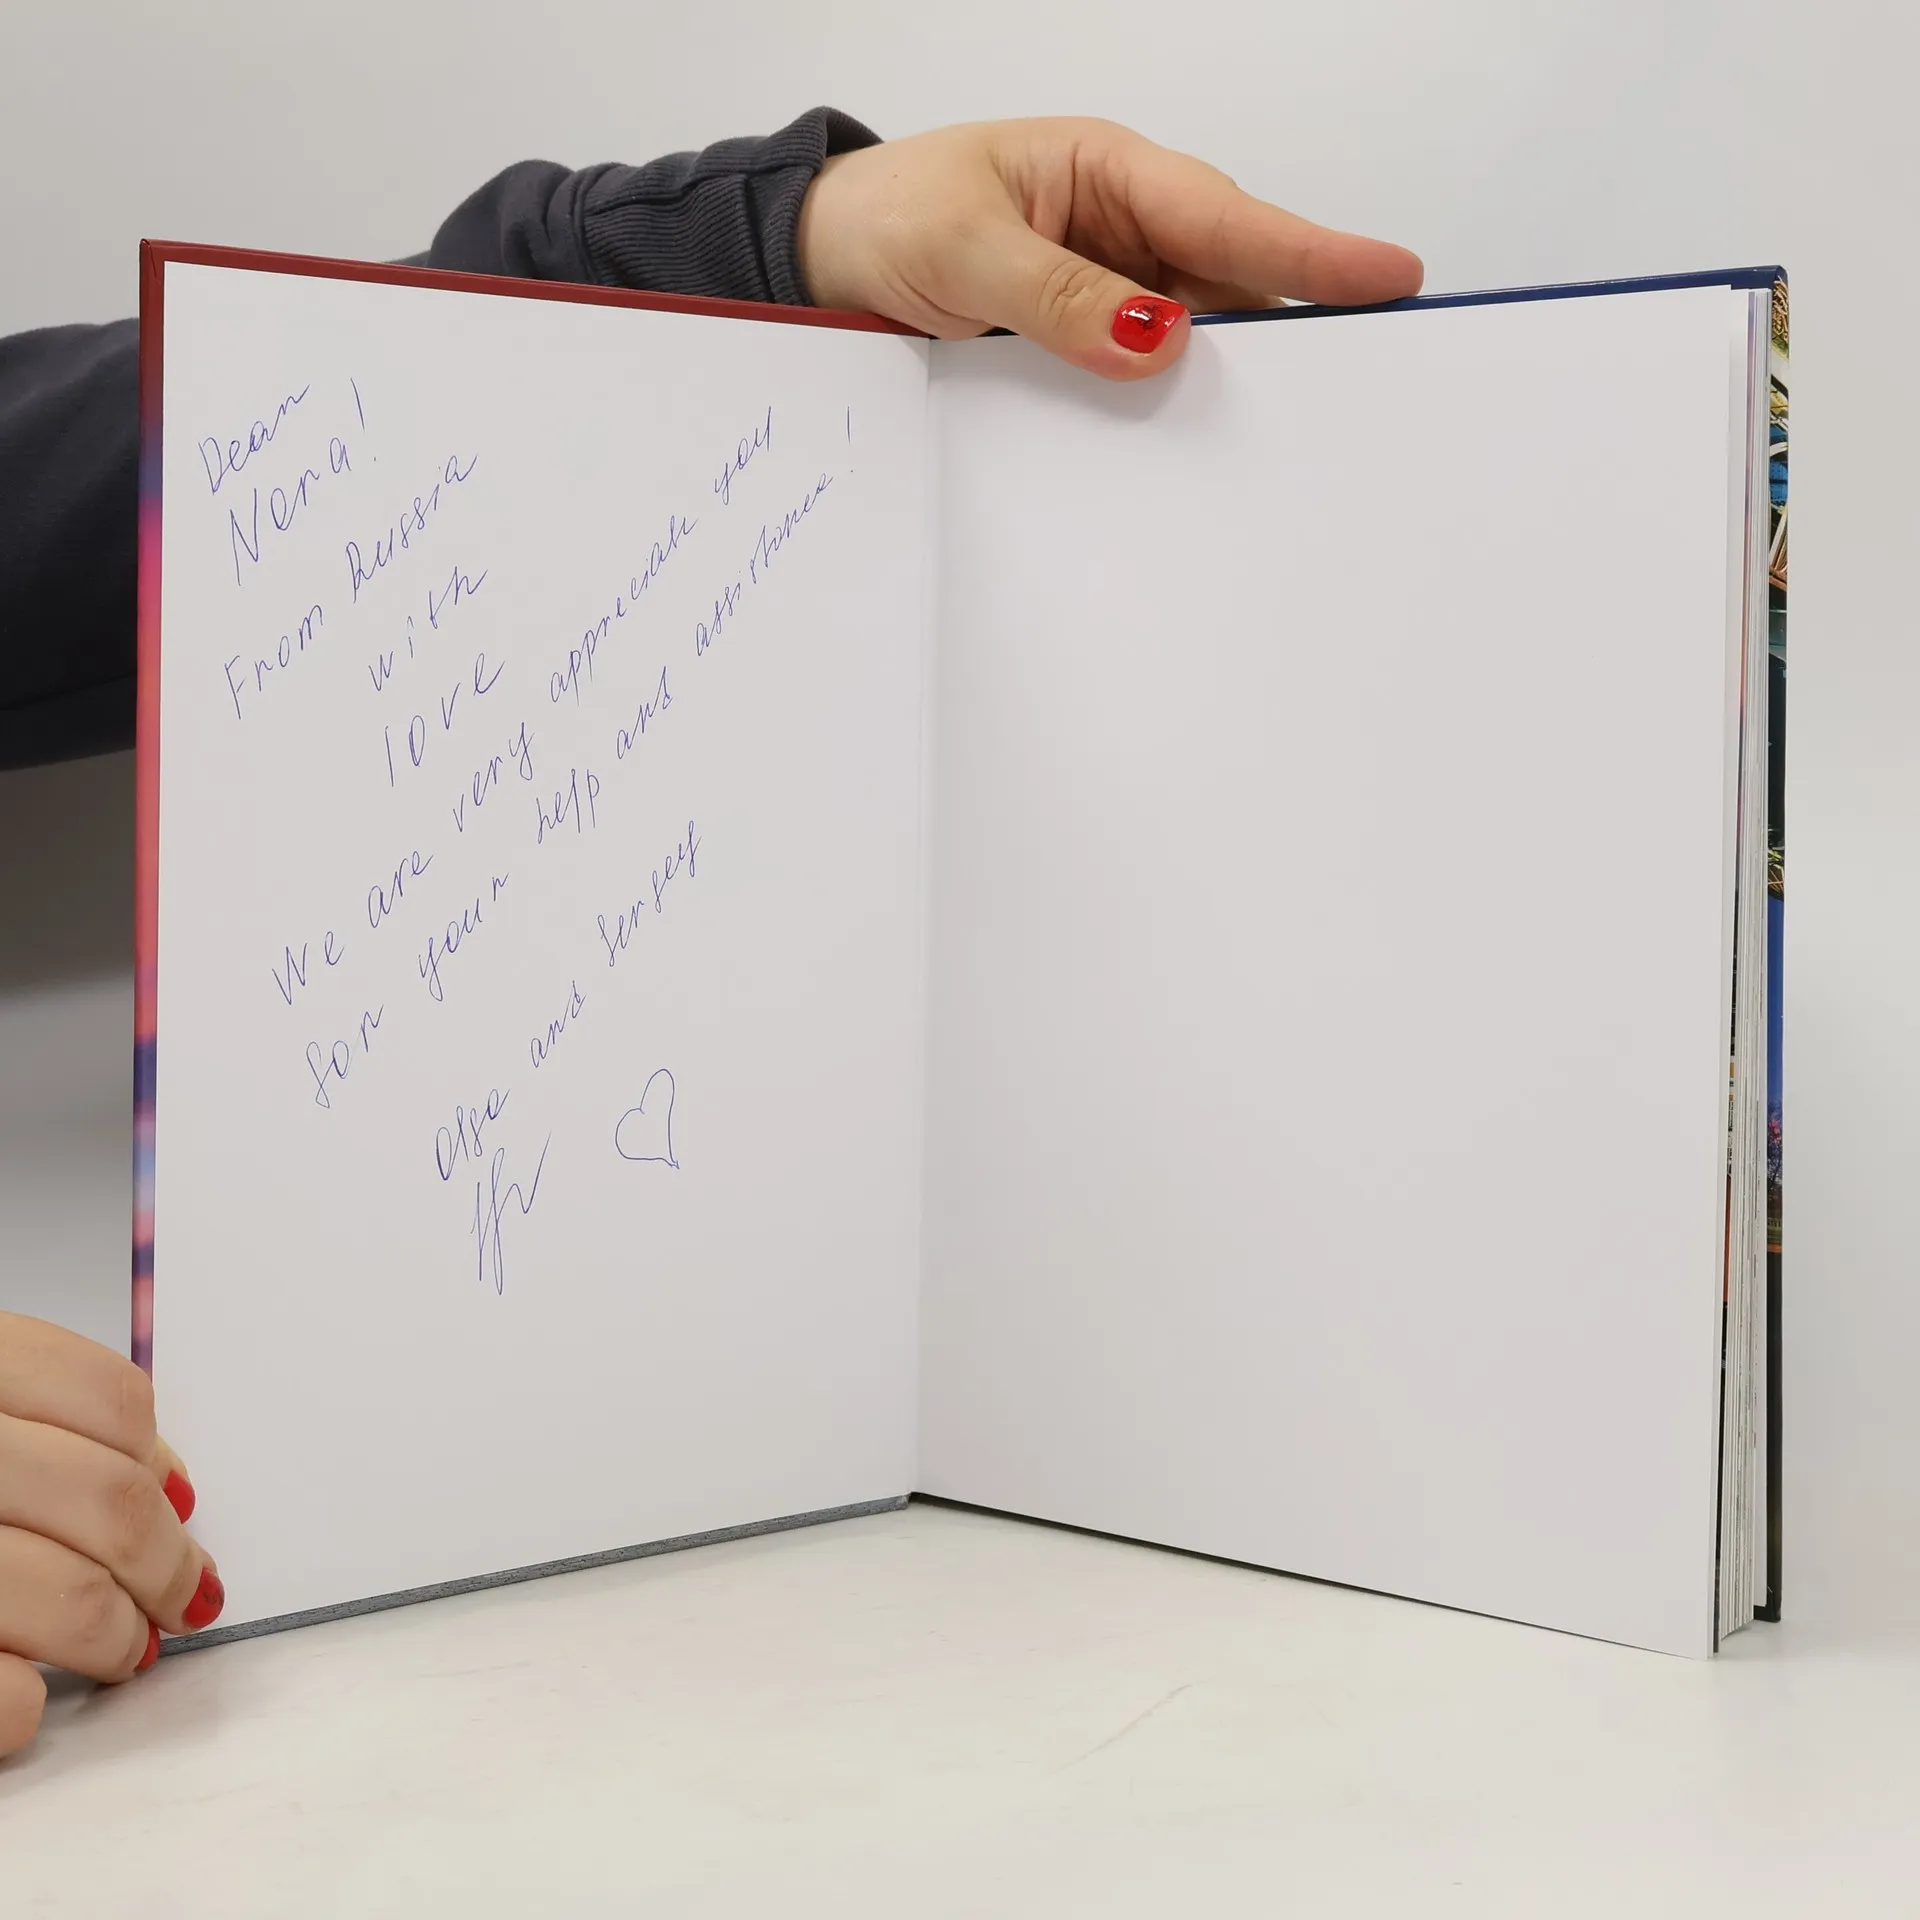 Dear
Nera!
From Russia
with
love
We are very appreciate you
for your help and assistance!
Olga and Sergey